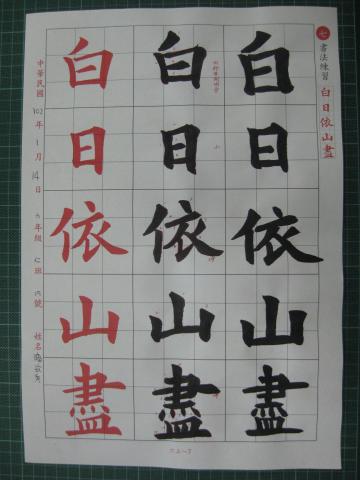 七 書法練習 白日依山盡
白日依山盡
白日依山盡
白日依山盡
中華民國102年1月14日 六年級 仁班 號 姓名